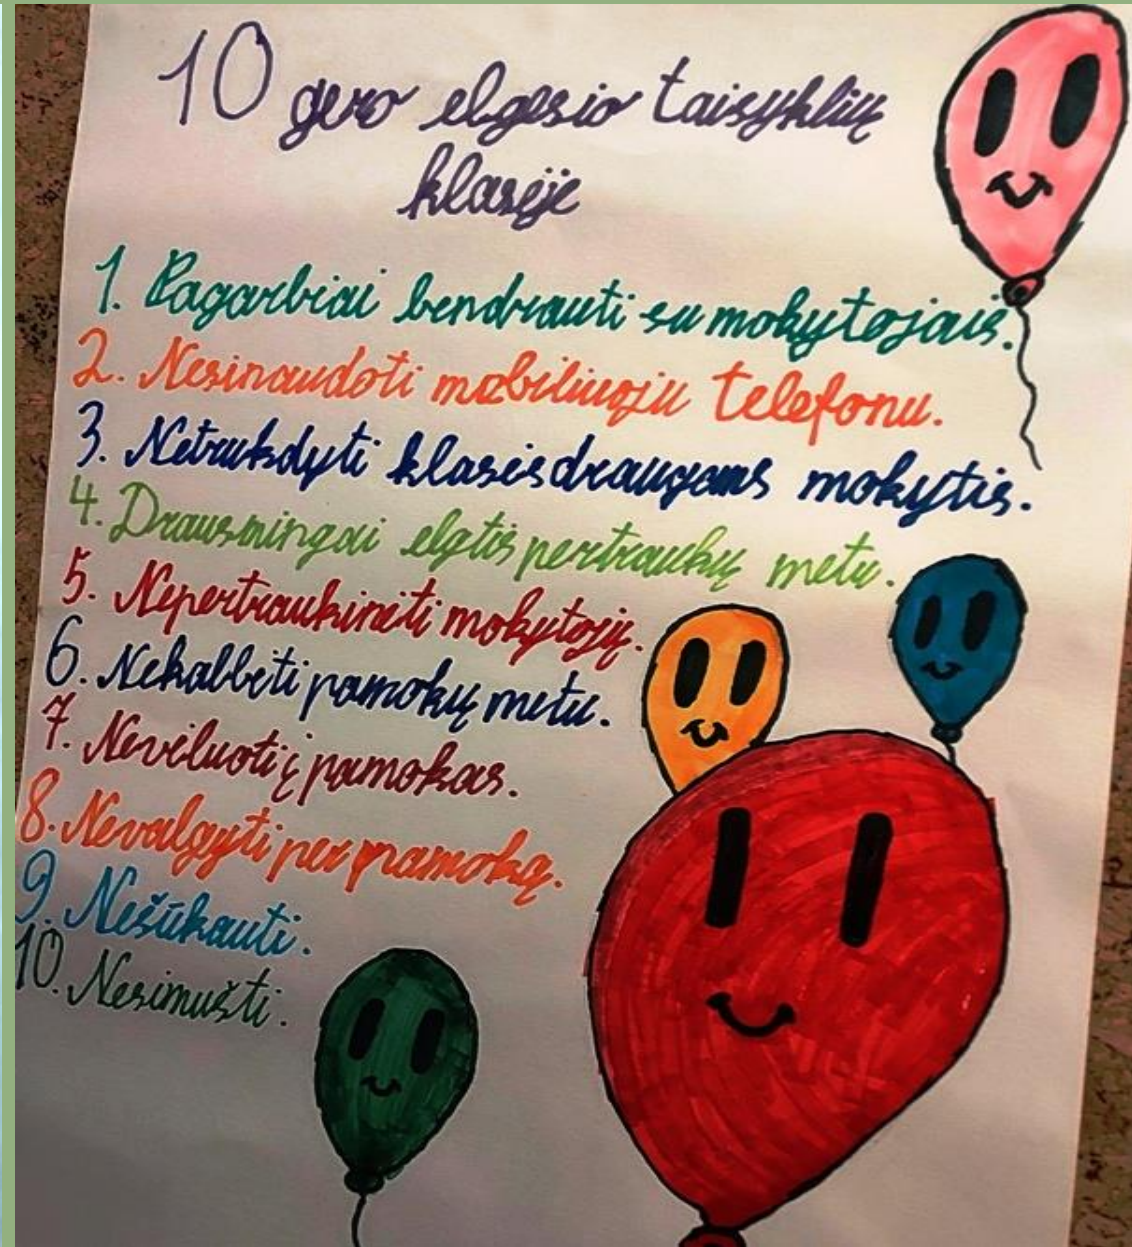 10 gero elgesio taisyklių
klasėje
1. Pagarbiai bendrauti su mokytojais.
2. Nesinaudoti mobiliuoju telefonu.
3. Netrukdyti klasės draugams mokytis.
4. Drausmingai elgtis pertraukų metu.
5. Nepertraukinėti mokytojų.
6. Nekalbėti pamokų metu.
7. Nevėluoti į pamokas.
8. Nevalgyti per pamoką.
9. Nešūkauti.
10. Nesimušti.